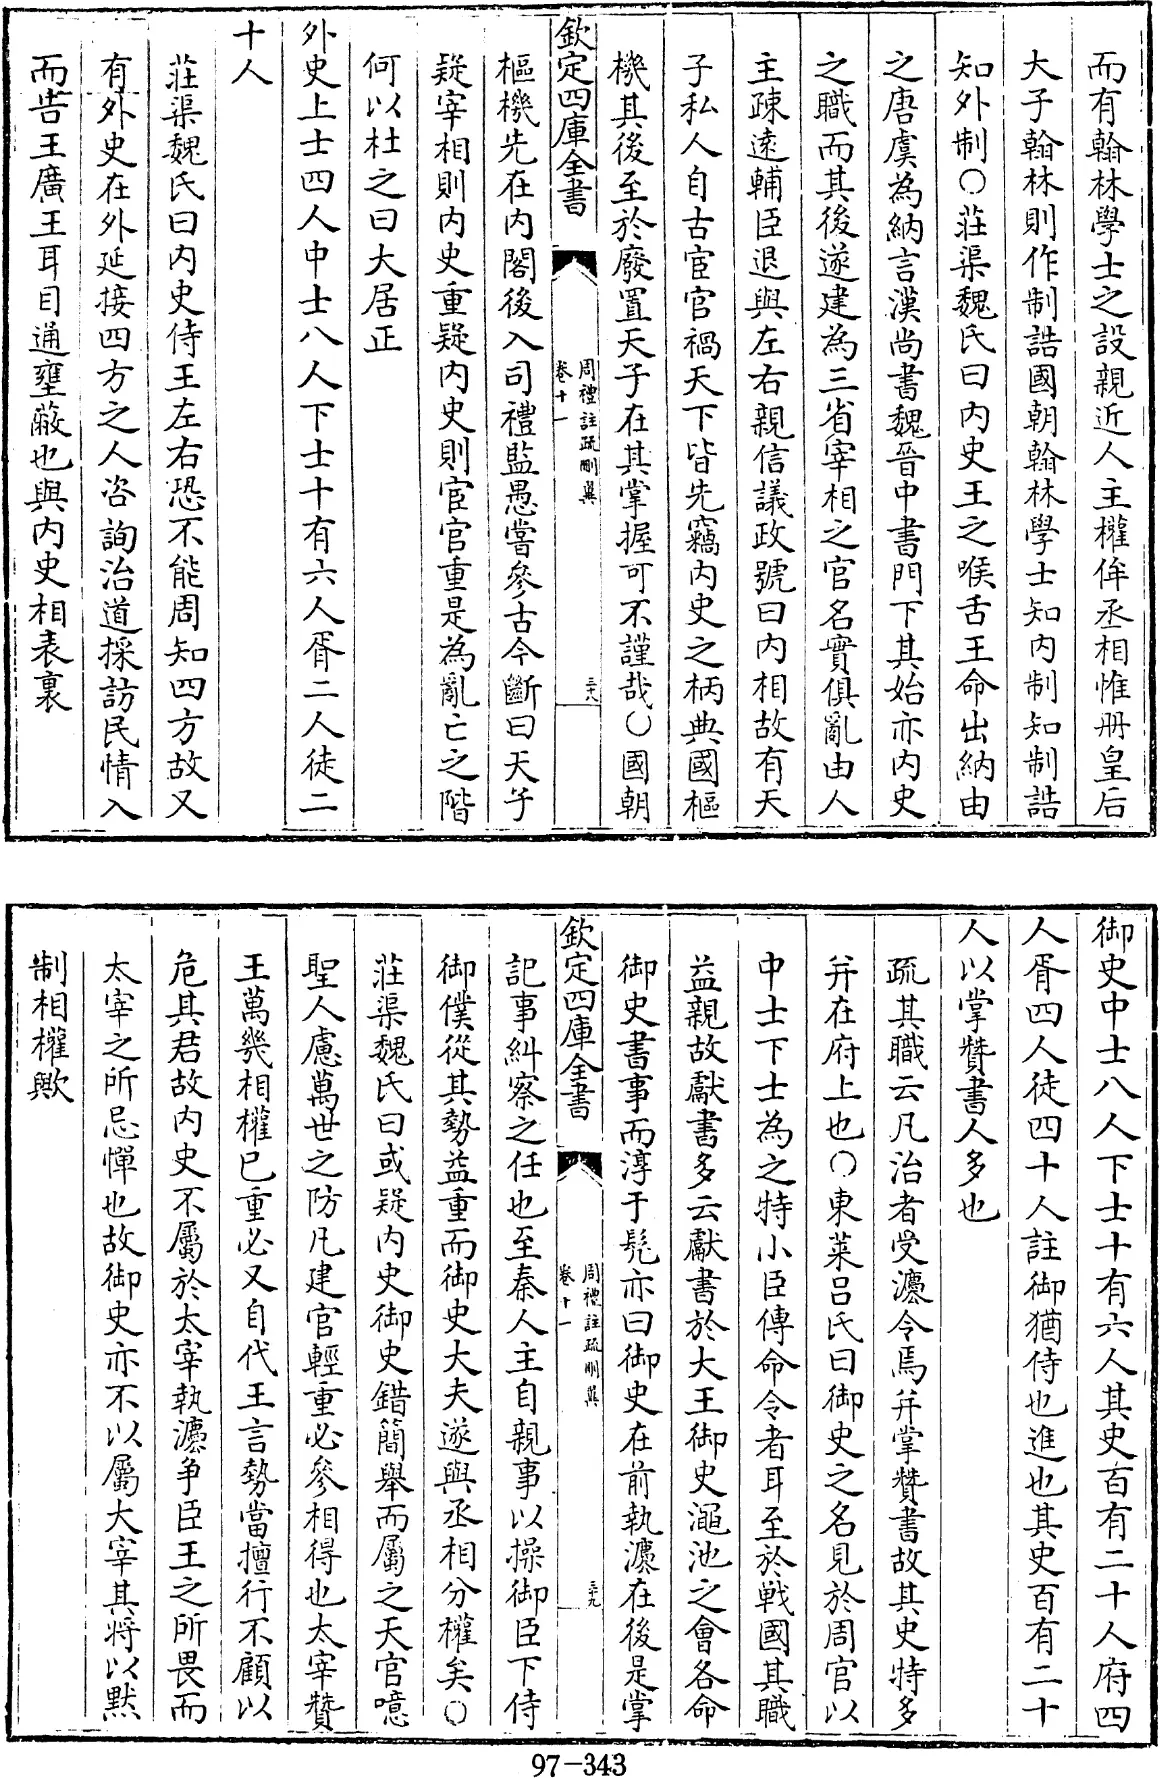 而有翰林學士之設親近人主權侔丞相惟冊皇后
大子翰林則作制誥國朝翰林學士知内制知制誥
知外制〇莊渠魏氏曰内史王之喉舌王命出納由
之唐虞為納言漢尚書魏晉中書門下其始亦内史
之職而其後遂建為三省宰相之官名實俱亂由人
主疎遠輔臣退與左右親信議政號曰内相故有天
子私人自古宦官禍天下皆先竊内史之柄典國樞
機其後至於廢置天子在其掌握可不謹哉〇國朝
欽定四庫全書
周禮註疏刪翼
卷十一
三十八
樞機先在内閣後入司禮監愚嘗參古今斷曰天子
疑宰相則内史重疑内史則宦官重是為亂亡之階
何以杜之曰大居正
外史上士四人中士八人下士十有六人胥二人徒二
十人
莊渠魏氏曰内史侍王左右恐不能周知四方故又
有外史在外延接四方之人咨詢治道採訪民情入
而告王廣王耳目通壅蔽也與内史相表裏
御史中士八人下士十有六人其史百有二十人府四
人胥四人徒四十人註御猶侍也進也其史百有二十
人以掌贊書人多也
疏其職云凡治者受灋令焉并掌贊書故其史特多
并在府上也〇東萊呂氏曰御史之名見於周官以
中士下士為之特小臣傳命令者耳至於戰國其職
益親故獻書多云獻書於大王御史澠池之會各命
御史書事而淳于髠亦曰御史在前執灋在後是掌
欽定四庫全書
周禮註疏刪翼
卷十一
三十九
記事糾察之任也至秦人主自親事以操御臣下侍
御僕從其勢益重而御史大夫遂與丞相分權矣〇
莊渠魏氏曰或疑内史御史錯簡舉而屬之天官噫
聖人慮萬世之防凡建官輕重必參相得也太宰贊
王萬幾相權已重必又自代王言勢當擅行不顧以
危其君故内史不屬於太宰執灋争臣王之所畏而
太宰之所忌憚也故御史亦不以屬大宰其將以黙
制相權歟
97-343